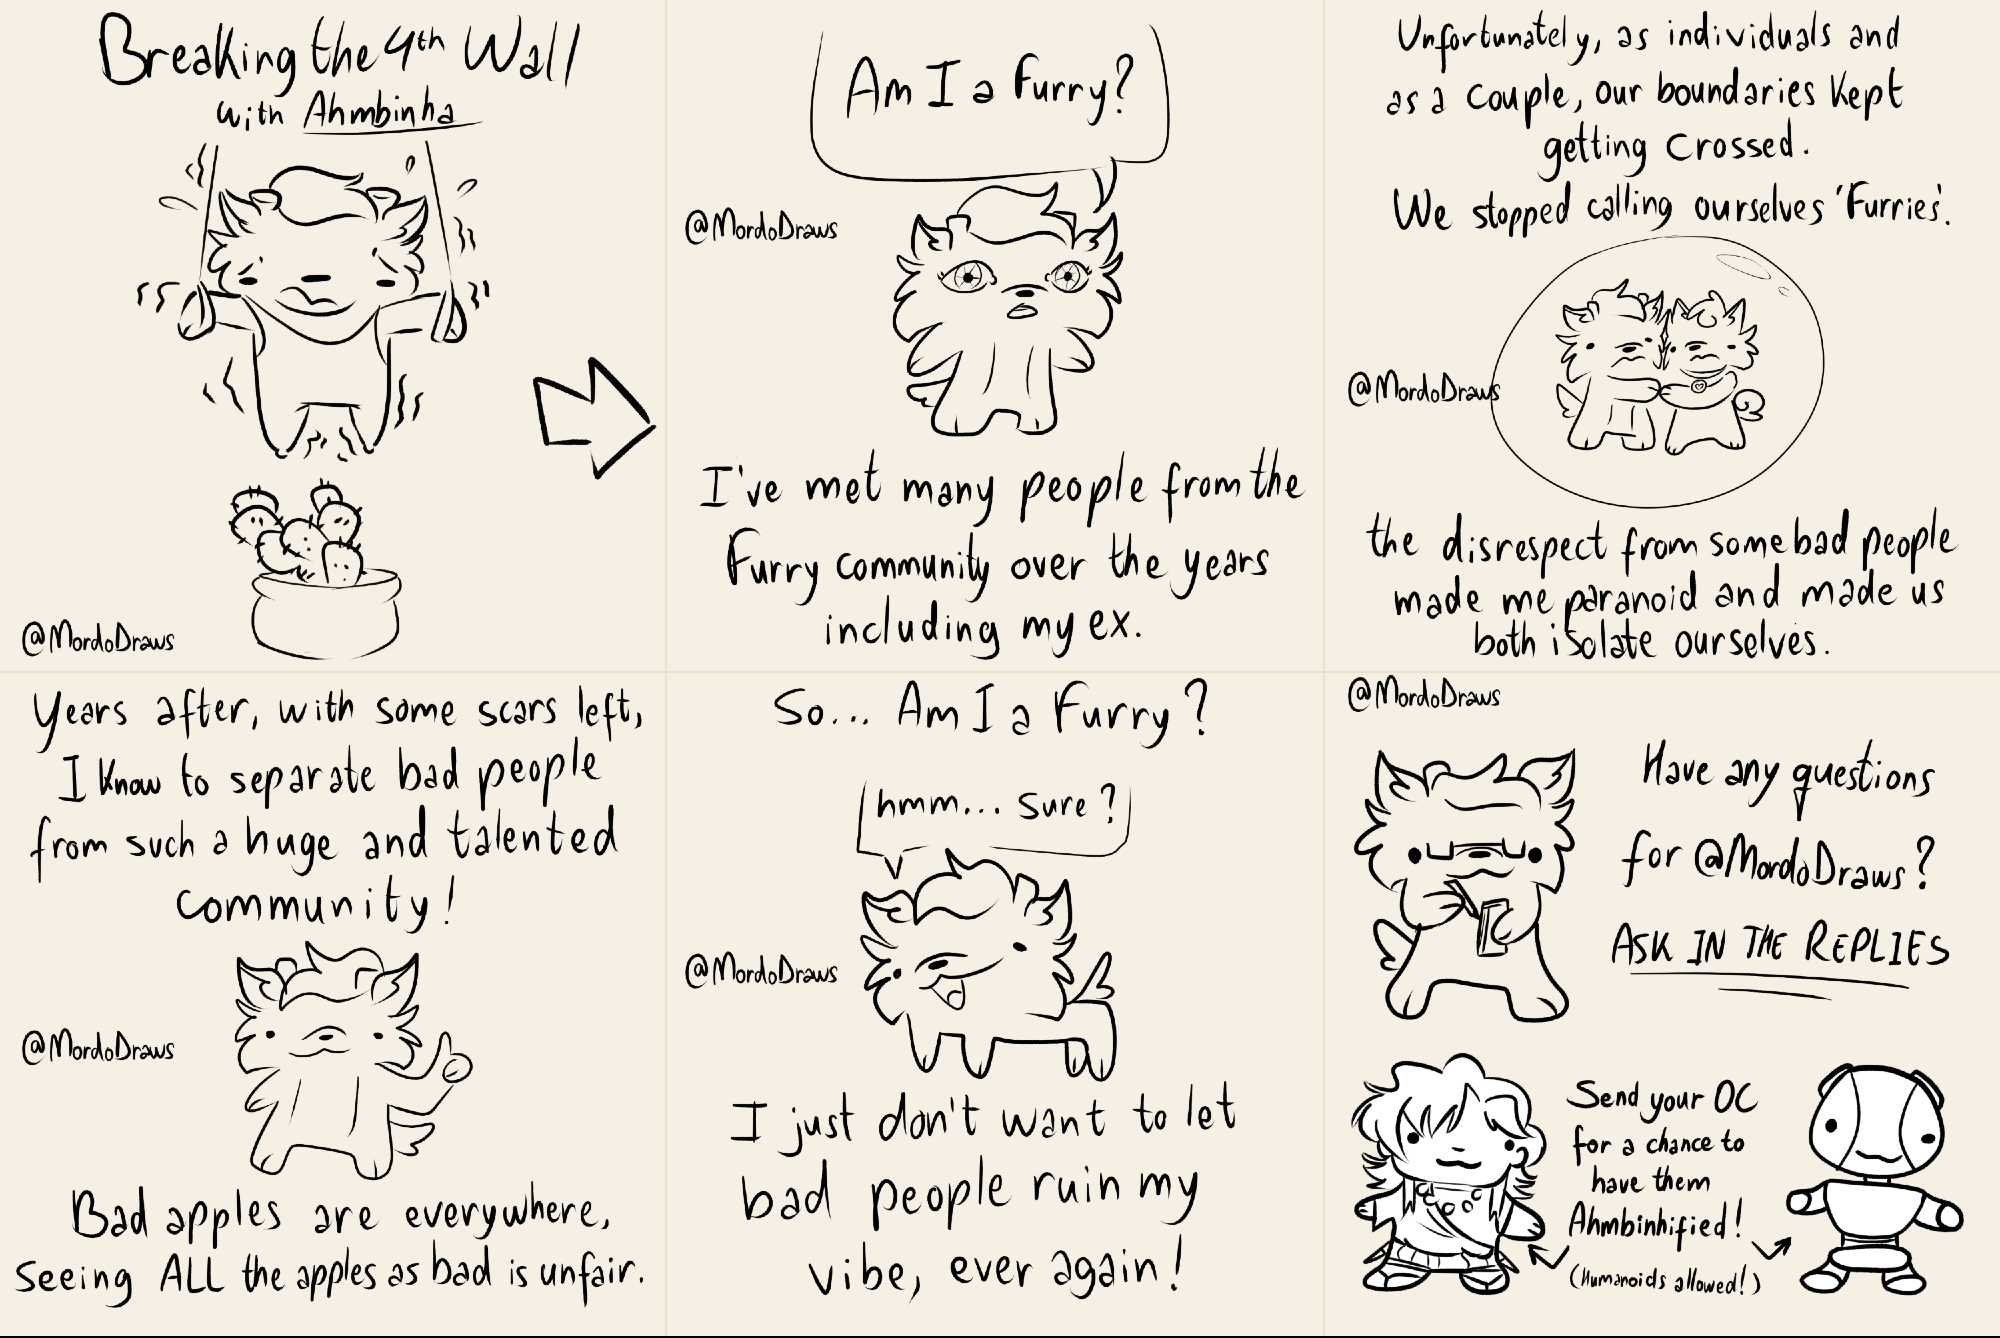 Breaking the 4th Wall
with Ahmbinha
@MordoDraws
Am I a Furry?
@MordoDraws
I've met many people from the
Furry community over the years
including my ex.
Unfortunately, as individuals and
as a couple, our boundaries kept
getting crossed.
We stopped calling ourselves 'Furries'.
@MordoDraws
the disrespect from some bad people
made me paranoid and made us
both isolate ourselves.
Years after, with some scars left,
I know to separate bad people
from such a huge and talented
community!
@MordoDraws
Bad apples are everywhere,
seeing ALL the apples as bad is unfair.
So... Am I a Furry?
hmm... sure?
@MordoDraws
I just don't want to let
bad people ruin my
vibe, ever again!
@MordoDraws
Have any questions
for @MordoDraws?
ASK IN THE REPLIES
Send your OC
for a chance to
have them
Ahmbinhified!
(Humanoids allowed!)